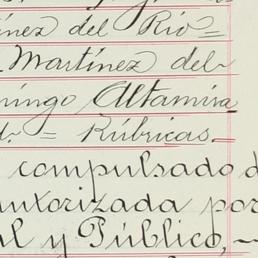 ínez del Río=
Martínez del
mingo Altamira
d. = Rúbricas.
compulsado d
autorizada por
al y Público, ~